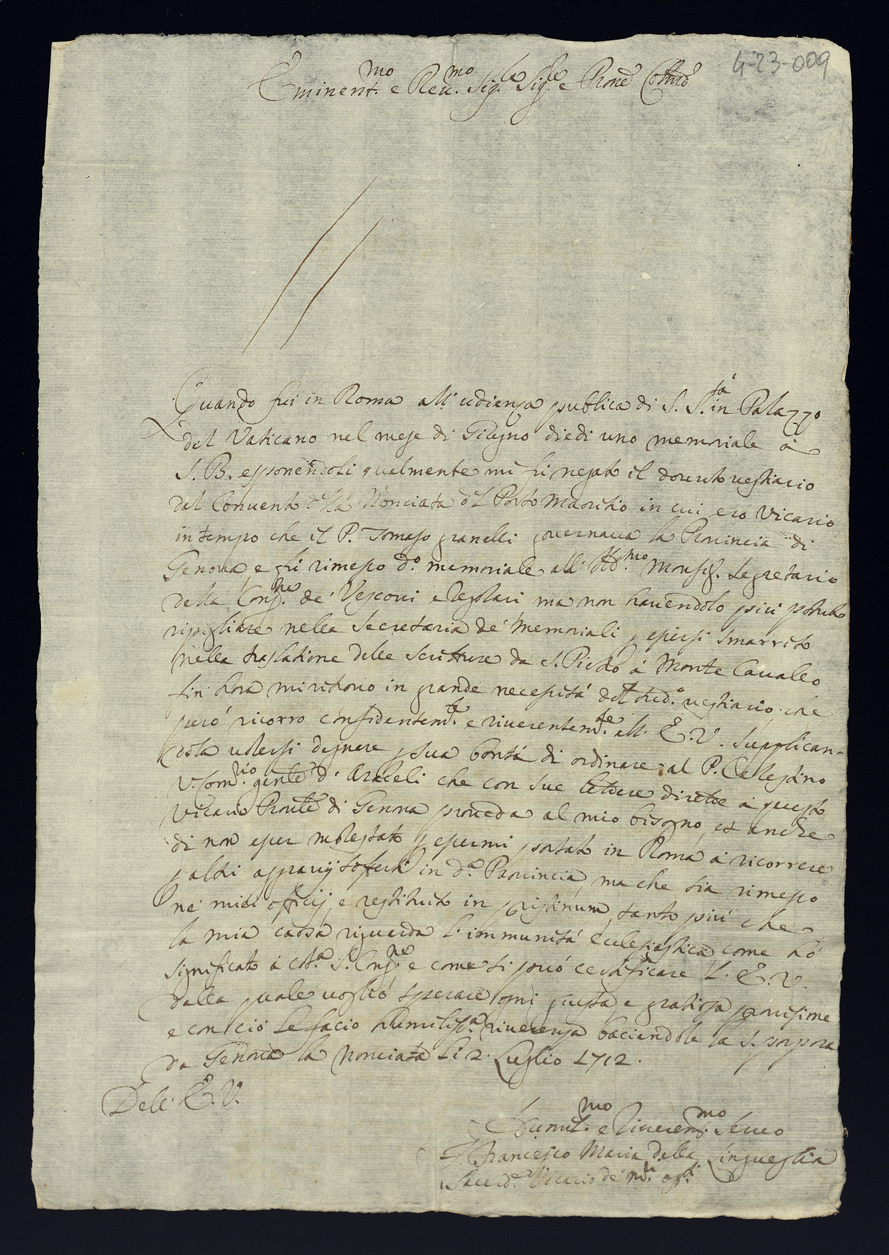 4-23-009
Eminent.mo e Reu.mo Sig.re Sig.re e Prone
Quando fui in Roma all'udienza publica di S. S.tà in Palazzo
del Vaticano nel mese di Giugno diedi uno memoriale à
S. B. esponendoli qualmente mi fù negato il douuto uestiario
del Conuento della Nonciata di Porto Maoritio in cui ero Vicario
in tempo che il P. Tomaso granelli gouernaua la Prouincia di
Genoua e fù rimesso d.o memoriale all' Ill.mo Monsig. Segretario
della Cong.ne de' Vescoui e Regolari ma non hauendolo più potuto
ripigliare nella Secretaria de' Memoriali p essersi smarrito
nella traslatione delle Scritture da S. Pietro à Monte Cauallo
fin hora mi ritrouo in grande necessità del sud.o uestiario che
però ricorro confidentem.te e riuerentem.te all' E. V. Supplican-
dola uolersi degnare p sua bontà di ordinare al P. Celestino
d' Araceli che con sue lettere dirette à questo
Vicario di Genoua proueda al mio bisogno, et anche
di non esser molestato p essermi portato in Roma à ricorrere
p altri aggrauij in d.a Prouincia, ma che sia rimesso
ne miei officij e restituito in pristinum, tanto più che
la mia causa riguarda l'immunità ecclesiastica come hò
significato à cot.a S. Cong.ne e come si può certificare l' E. V.
dalla quale uoglio sperare ogni giusta e gratiosa prouisione
e con ciò le facio humiliss.a riuerenza baciandole la S. porpora
da Genoua la Nonciata li 2. Luglio 1712.
Dell' E. V.
Humil.mo e Riueren.mo Seruo
F. Francesco Maria della Lingueglia
Vicario de'